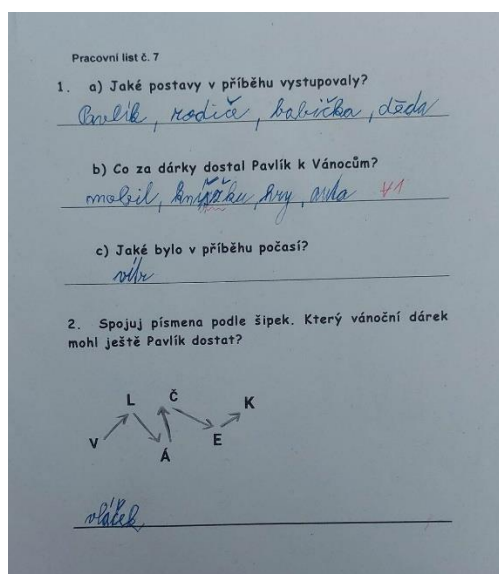 Pracovní list č. 7
1. a) Jaké postavy v příběhu vystupovaly?
Pavlík, rodiče, babička, děda
b) Co za dárky dostal Pavlík k Vánocům?
mobil, knížku, hry, auta
c) Jaké bylo v příběhu počasí?
2. Spojuj písmena podle šipek. Který vánoční dárek
mohl ještě Pavlík dostat?
L Č K
V Á E
vláček